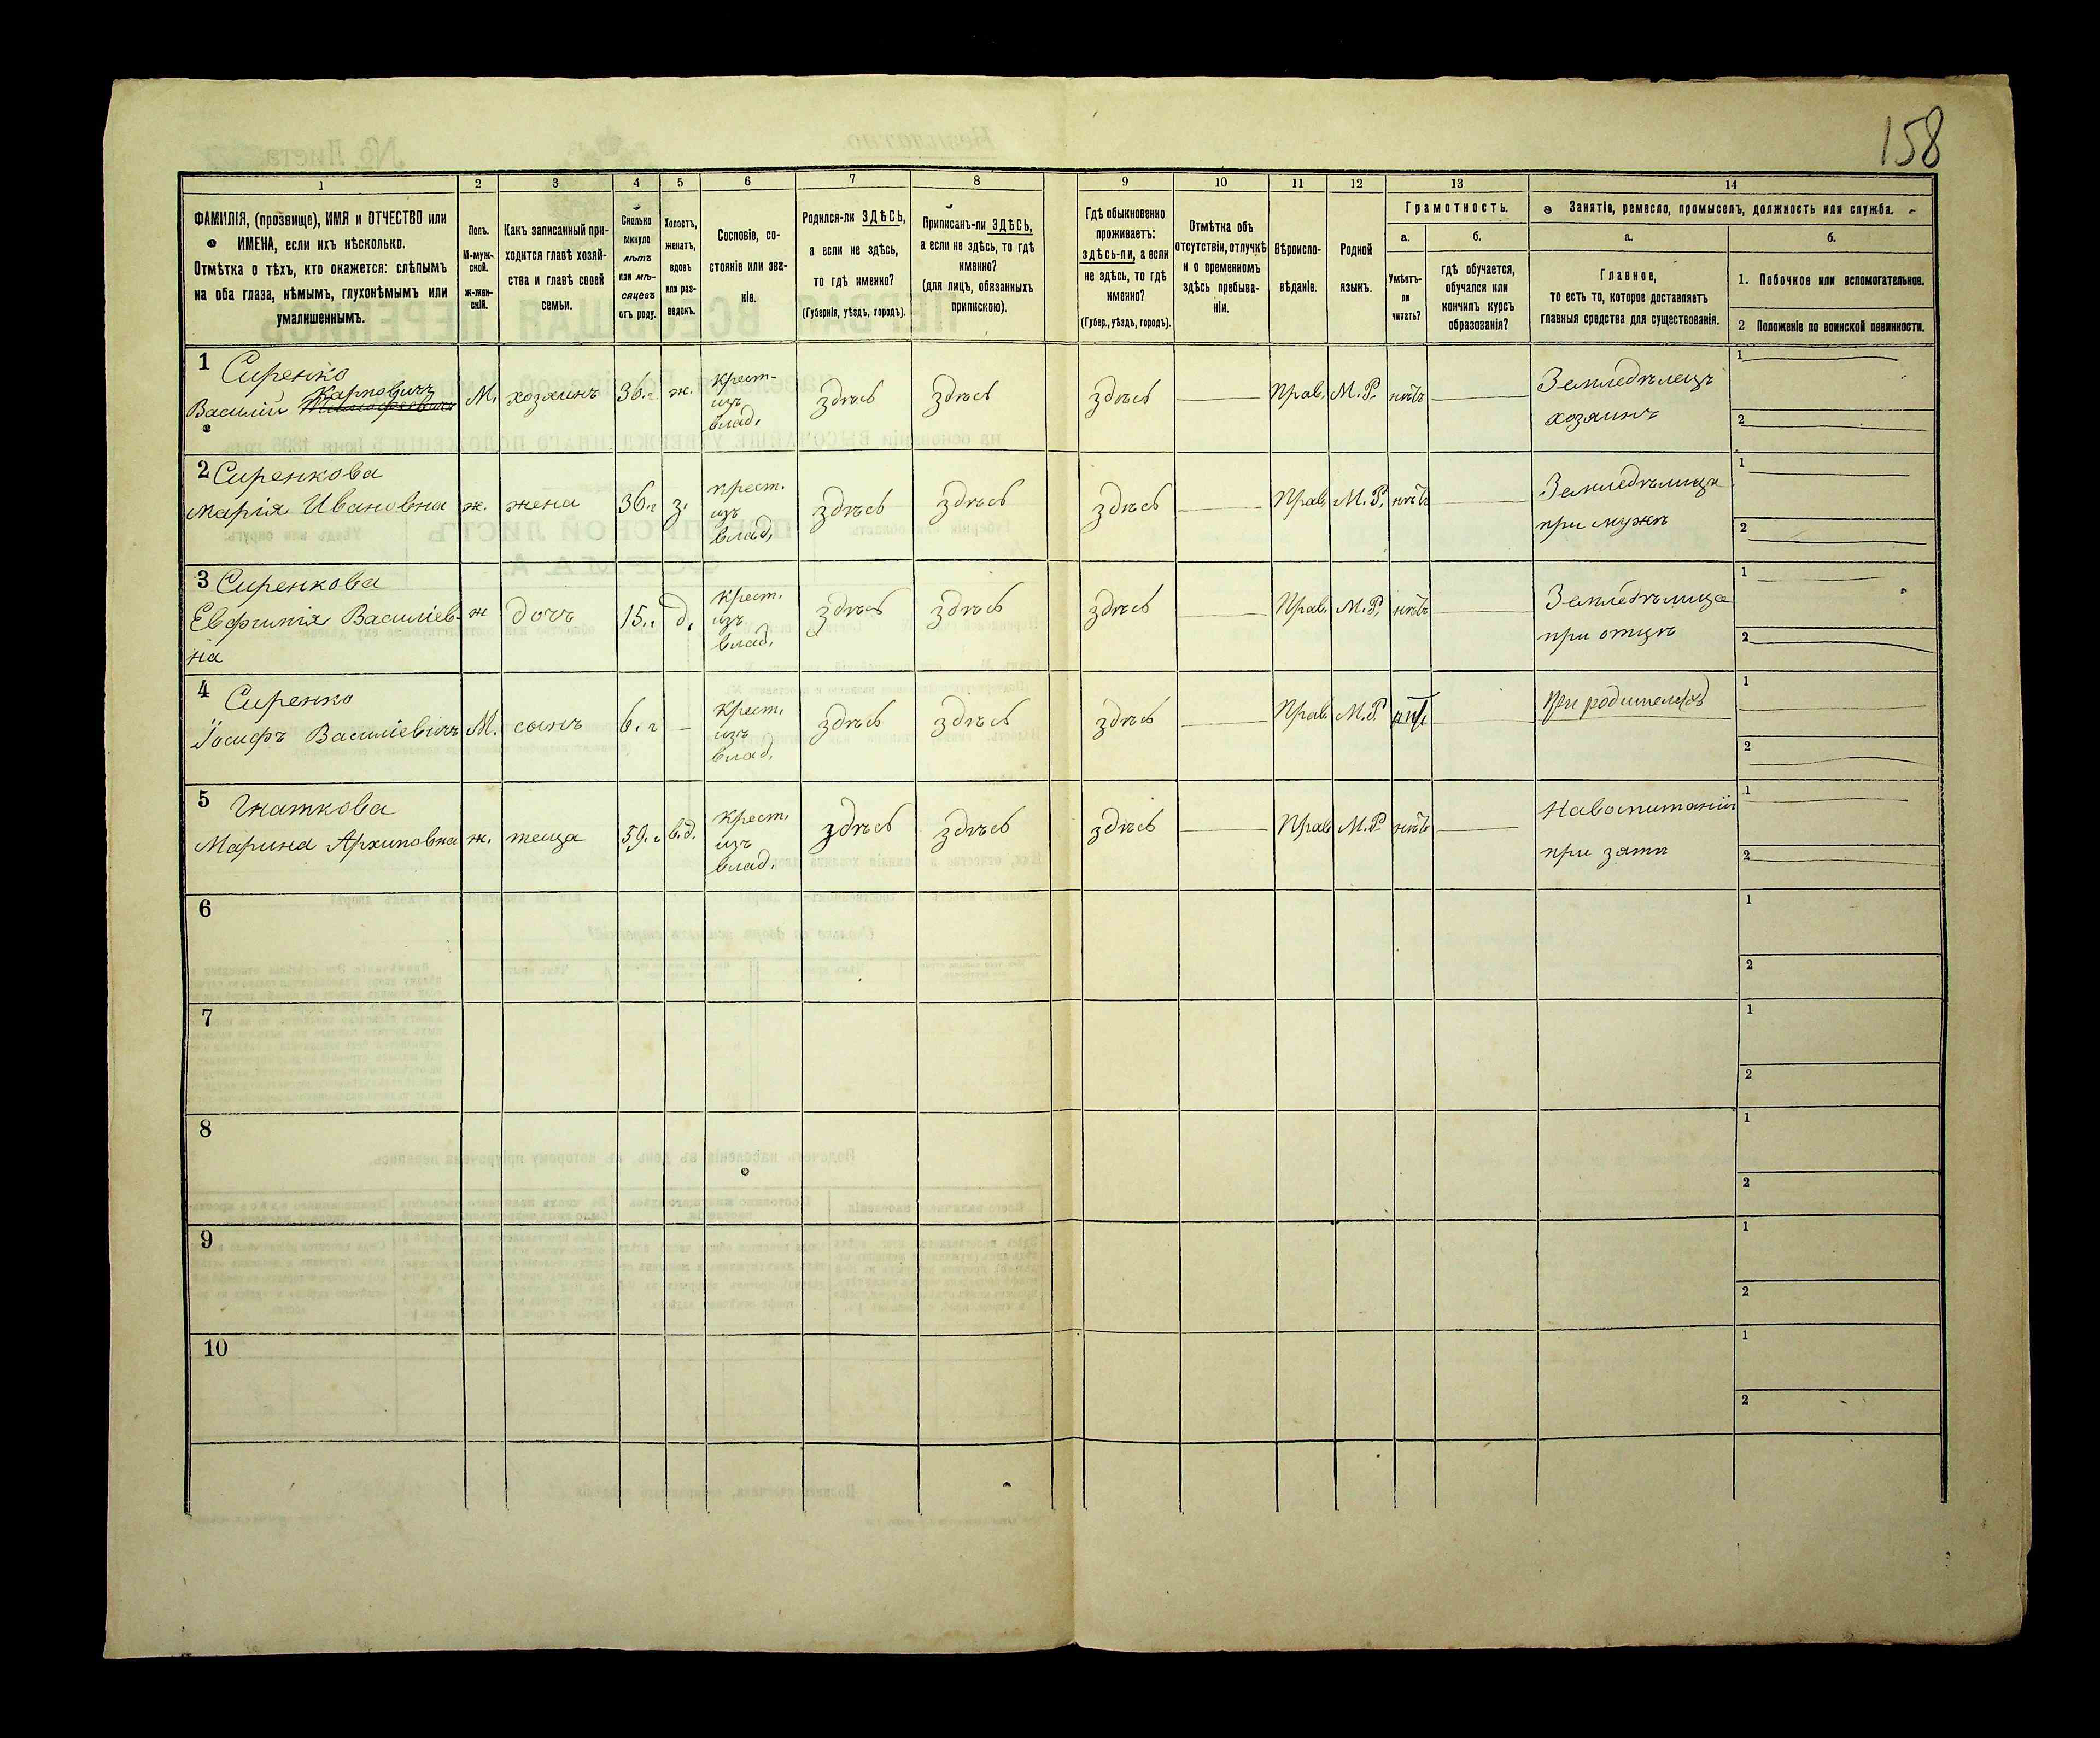 158
1
2
3
4
5
6
7
8
9
10
11
12
13
14
ФАМИЛІЯ, (прозвище), ИМЯ и ОТЧЕСТВО или
ИМЕНА, если ихъ нѣсколько.
Отмѣтка о тѣхъ, кто окажется: слѣпымъ
на оба глаза, нѣмымъ, глухонѣмымъ или
умалишеннымъ.
Полъ.
М-муж-
ской.
ж-жен-
скій.
Какъ записанный при-
ходится главѣ хозяй-
ства и главѣ своей
семьи.
Сколько
минуло
лѣтъ
или мѣ-
сяцевъ
отъ роду.
Холостъ,
женатъ,
вдовъ
или раз-
веденъ.
Сословіе, со-
стояніе или зва-
ніе.
Родился-ли ЗДѢСЬ,
а если не здѣсь,
то гдѣ именно?
(Губернія, уѣздъ, городъ).
Приписанъ-ли ЗДѢСЬ,
а если не здѣсь, то гдѣ
именно?
(для лицъ, обязанныхъ
припискою).
Гдѣ обыкновенно
проживаетъ:
здѣсь-ли, а если
не здѣсь, то гдѣ
именно?
(Губер., уѣздъ, городъ).
Отмѣтка объ
отсутствіи, отлучкѣ
и о временномъ
здѣсь пребыва-
ніи.
Вѣроиспо-
вѣданіе.
Родной
языкъ.
Грамотность.
а.
Умѣетъ-
ли
читать?
б.
гдѣ обучается,
обучался или
кончилъ курсъ
образованія?
Занятіе, ремесло, промыселъ, должность или служба.
а.
Главное,
то есть то, которое доставляетъ
главныя средства для существованія.
б.
1. Побочное или вспомогательное.
2 Положеніе по воинской повинности.
1 Сиренко
Карповичъ
Василій
М. хозяинъ 36.г. ж. крест- изъ влад. здѣсь здѣсь здѣсь Прав. М.Р. нѣтъ
Земледѣлецъ
хозяинъ
1
2
2 Сиренкова
Марія Ивановна ж. жена 36.г з. крест. изъ влад. здѣсь здѣсь здѣсь Прав. М.Р. нѣтъ
Земледѣлица
при мужѣ
1
2
3 Сиренкова
Евфимія Василіев-
на
ж дочь 15.г д. крест. изъ влад. здѣсь здѣсь здѣсь Прав. М.Р. нѣтъ
Земледѣлица
при отцѣ
1
2
4 Сиренко
Іосифъ Василіевичъ М. сынъ 6.г – крест. изъ влад. здѣсь здѣсь здѣсь Прав. М.Р. нѣт
При родителяхъ
1
2
5 Гнаткова
Марина Архиповна ж. теща 59.г вд. крест. изъ влад. здѣсь здѣсь здѣсь Прав М.Р. нѣтъ
Навоспитаніи
при зяти
1
2
6
1
2
7
1
2
8
1
2
9
1
2
10
1
2